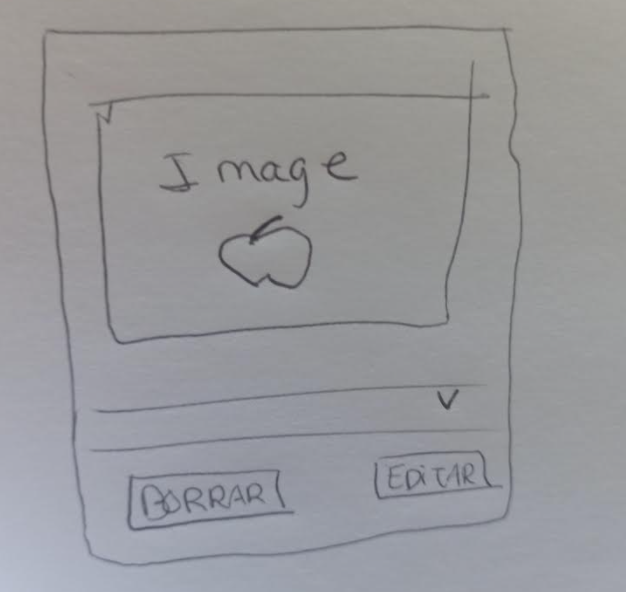 Image
V
BORRAR
EDITAR